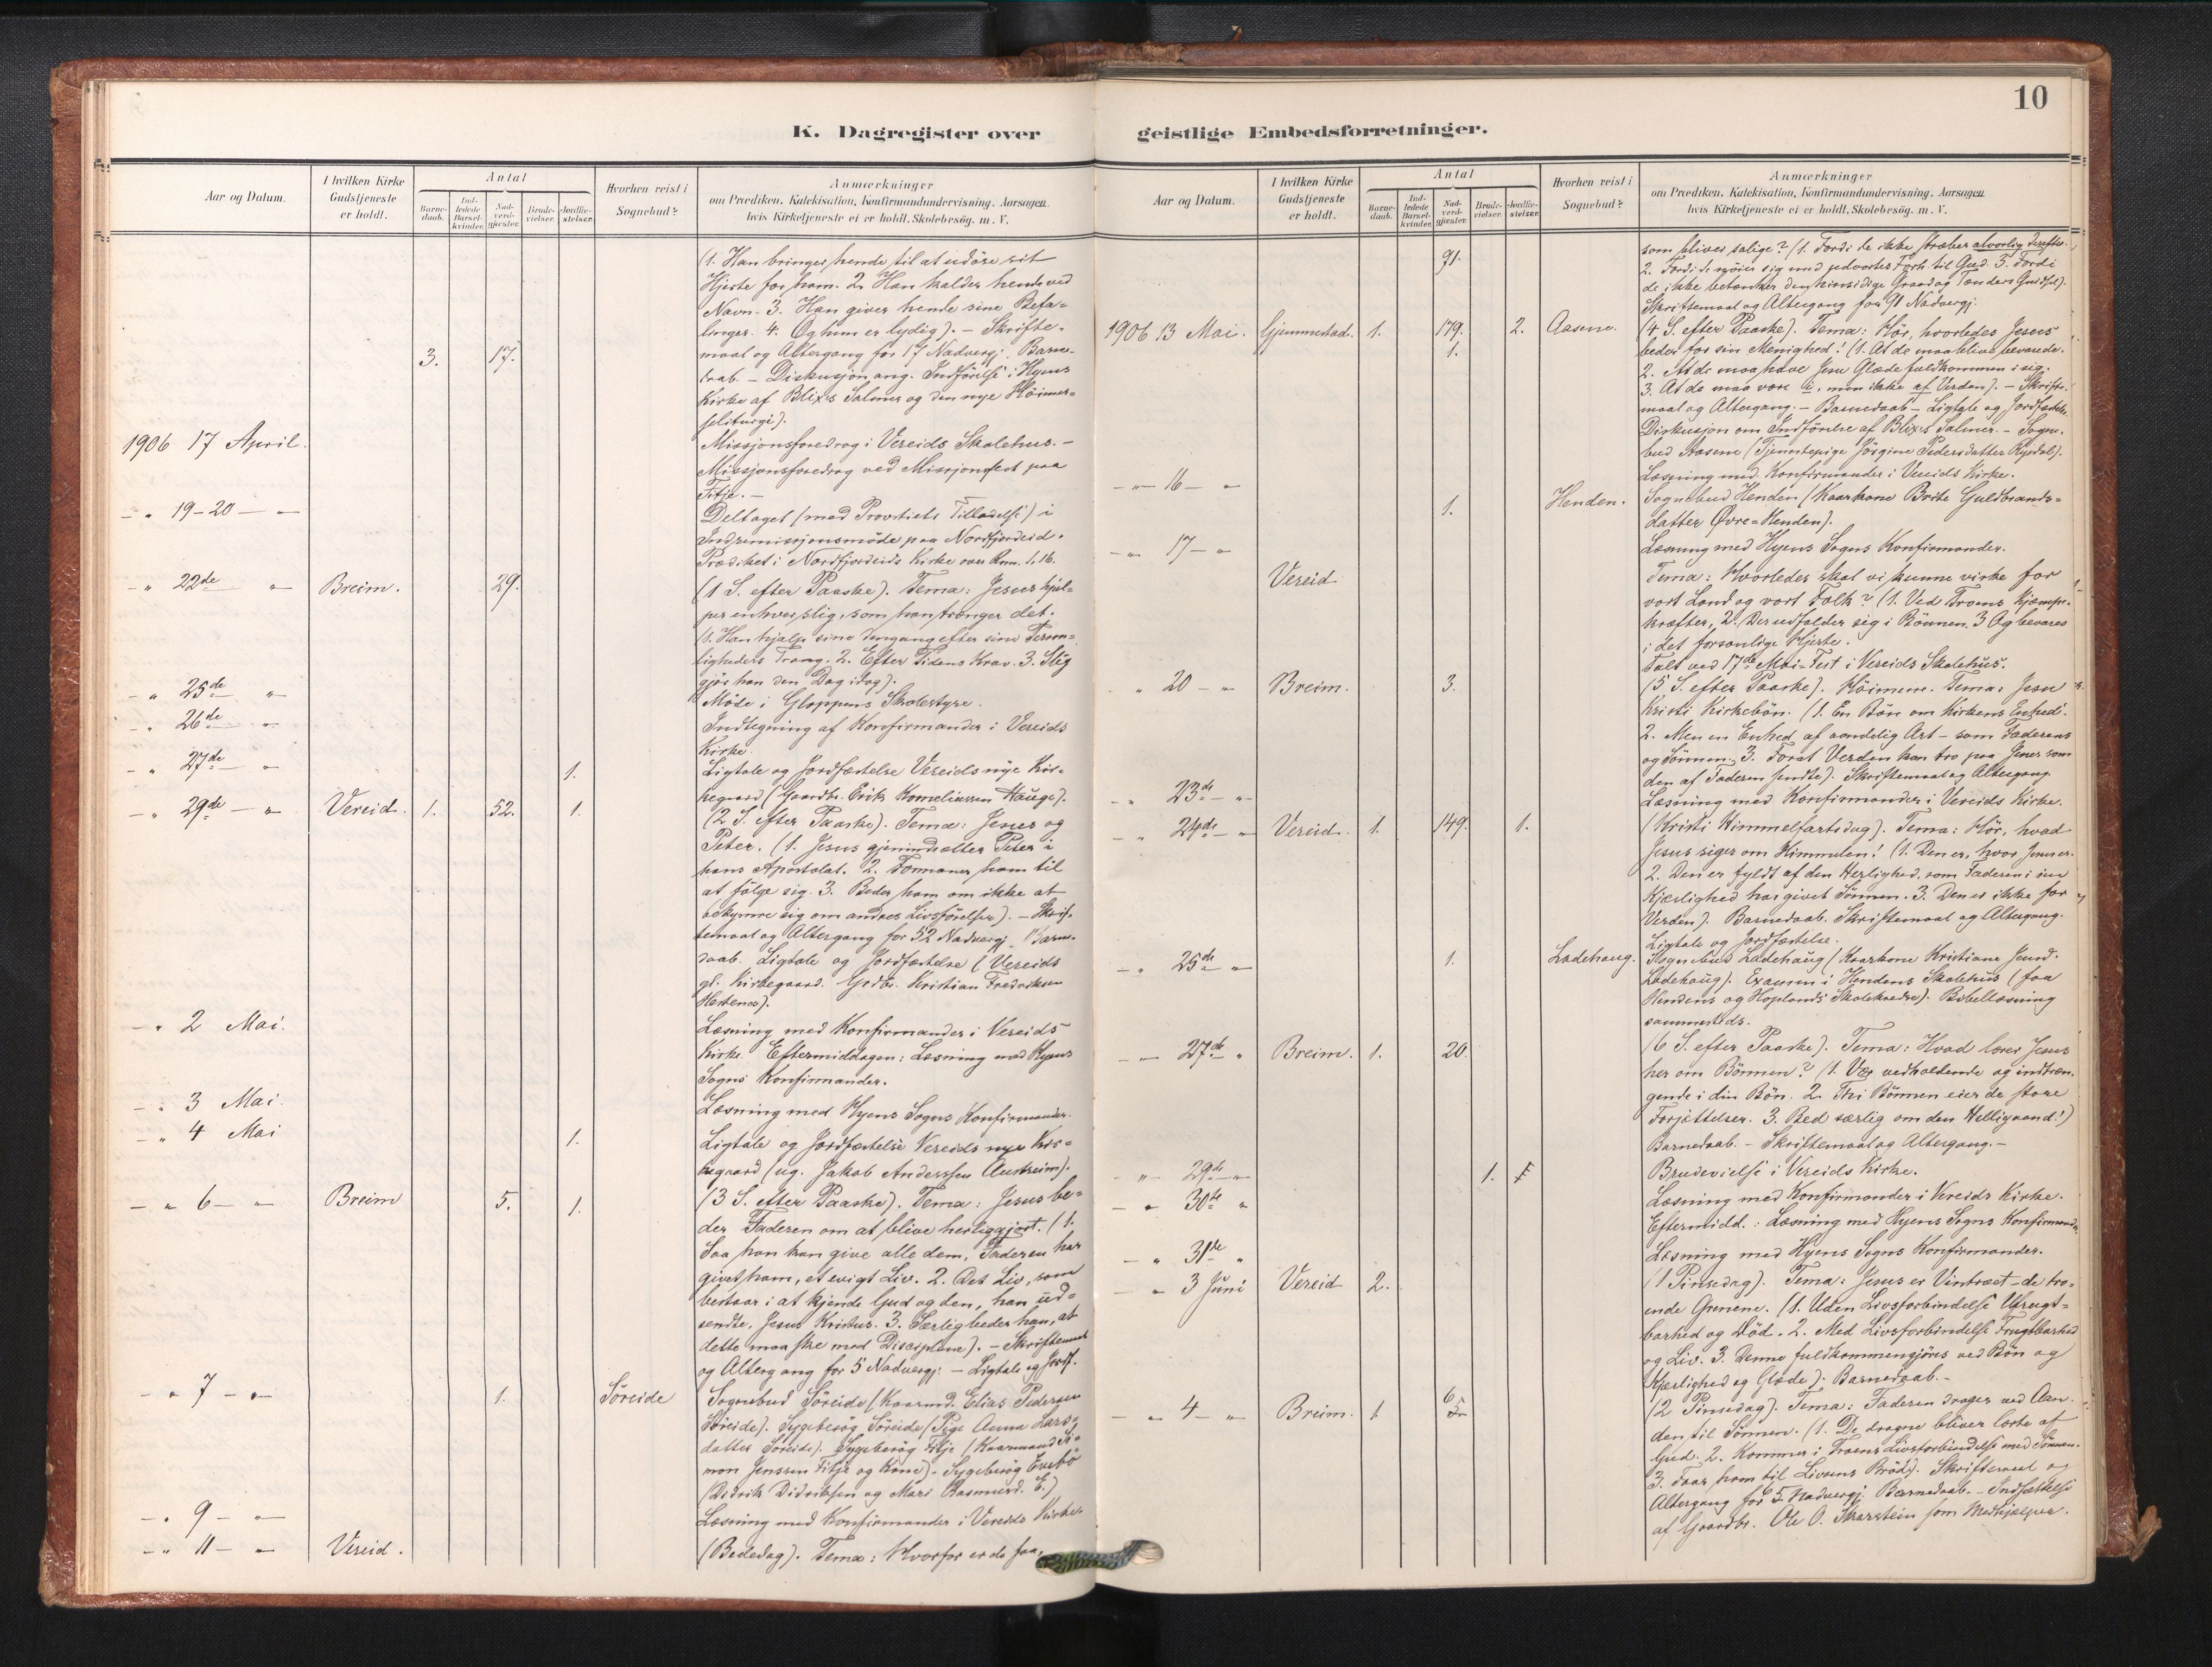 K. Dagregister over
Aar og Datum.
I hvilken Kirke
Gudstjeneste
er holdt.
Antal
Barne-
daab.
Ind-
ledede
Barsel-
kvinder.
Nad-
verd-
gjester.
Brude-
vielser.
Jordfæ-
stelser.
Hvorhen reist i
Sognebud?
Anmærkninger
om Prædiken, Katekisation, Konfirmandundervisning, Aarsagen,
hvis Kirketjeneste ei er holdt, Skolebesög. m. V.
(1. Han bringer hende til at udöse sit
Hjerte for ham. 2. Han kalder hende ved
Navn. 3. Han giver hende sine Befa-
linger. 4. Og hun er lydig). - Skrifte-
3. 17. maal og Altergang for 17 Nadvergj. Barne-
daab. - Diskusjon ang. Indförelse i Hyens
Kirke af Blix's Salmer og den nye Höimes-
seliturgi).
1906 17 April. Missjonsforedrag i Vereids Skolehus. -
Missjonsforedrag ved Missjonsfest paa
Fitje. -
- " 19-20 - " Deltaget (med Provstiets Tilladelse) i
Indremissjonsmöde paa Nordfjordeid.
Prædiket i Nordfjordeids Kirke over Rom. 1.16.
- " 22de " Breim. 29. (1 S. efter Paaske). Tema: Jesus hjæl-
per enhver slig, som han trænger det.
(1. Han hjalp sine dengang efter sine Person-
ligheders Trang. 2. Efter Tidens Krav. 3. Slig
gjör han den Dag idag).
- " 25de " Möde i Gloppens Skolestyre.
- " 26de " Indtegning af Konfirmander i Vereids
Kirke.
- " 27de " 1. Ligtale og Jordfæstelse Vereids nye Kir-
kegaard (Gaardbr. Erik Kornelinssen Hauge).
- " 29de - " Vereid. 1. 52. 1. (2 S. efter Paaske). Tema: Jesus og
Peter. (1. Jesus gjenindsætter Peter i
hans Apostolat. 2. Formaner ham til
at fölge sig. 3. Beder ham om ikke at
bekymre sig om andres Livsförelser). - Skrif-
temaal og Altergang for 52 Nadvergj. Barne-
daab. Ligtale og Jordfæstelse (Vereids
gl. Kirkegaard. Grdbr. Kristian Fredriksen
Hestenes).
- " 2 Mai. Læsning med Konfirmander i Vereids
Kirke. Eftermiddagen: Læsning med Hyens
Sogns Konfirmander.
- " 3 Mai. Læsning med Hyens Sogns Konfirmander.
- " 4 Mai 1. Ligtale og Jordfæstelse Vereids nye Kir-
kegaard (ug. Jakob Anderssen Austreim).
- " 6 - " Breim 5. 1. (3 S. efter Paaske). Tema: Jesus be-
der Faderen om at blive herliggjort. (1.
Saa han kan give alle dem, Faderen har
givet ham, et evigt Liv. 2. Det Liv, som
bestaar i at kjende Gud og den, han ud-
sendte, Jesus Kristus. 3. Særlig beder han, at
dette maa ske med Disciplene). - Skriftemaal
og Altergang for 5 Nadvergj: - Ligtale og Jordf.
- " 7 - " 1. Söreide Sognebud Söreide (Kaarmd. Elias Pedersen
Söreide). Sygebesög Söreide (Pige Anna Lars-
datter Söreide). Sygebesög Fitje (Kaarmand Si-
mon Jenssen Fitje og Kone). - Sygebesög Evebö
(Didrik Didriksen og Mari Rasmusd. E.)
- " 9 - " Læsning med Konfirmander i Vereids Kirke.
- " 11 - " Vereid. (Bededag). Tema: Hvorfor er de faa,
10
geistlige Embedsforretninger.
Aar og Datum.
I hvilken Kirke
Gudstjeneste
er holdt.
Antal
Barne-
daab.
Ind-
ledede
Barsel-
kvinder.
Nad-
verd-
gjester.
Brude-
vielser.
Jordfæ-
stelser.
Hvorhen reist i
Sognebud?
Anmærkninger
om Prædiken, Katekisation, Konfirmandundervisning, Aarsagen,
hvis Kirketjeneste ei er holdt, Skolebesög. m. V.
91. som bliver salige? (1. Fordi de ikke stræber alvorlig derefter.
2. Fordi de nöier sig med udvortes Forh. til Gud. 3. Fordi
de ikke betænker den hinsidige Graad og Tænders Gnidsel).
Skriftemaal og Altergang for 91 Nadvergj.
1906 13 Mai. Gjemmestad. 1. 179. 2. Aasene. (4 S. efter Paaske). Tema: Hör, hvorledes Jesus
1. beder for sin Menighed! (1. At de maa blive bevarede.
2. At de maa have Jesu Glæde fuldkommen i sig.
3. At de maa være i, men ikke af Verden). - Skrifte-
maal og Altergang. - Barnedaab - Ligtale og Jordfæstelse.
Diskusjon om Indförelse af Blix's Salmer. - Sogne-
bud Aasene (Tjenestepige Jörgine Pedersdatter Rysdal).
- " - 16 - " Læsning med Konfirmander i Vereids Kirke.
1. Henden. Sognebud Henden (Kaarkone Brite Guldbrands-
datter Øvre-Henden).
- " 17 - " Læsning med Hyens Sogns Konfirmander.
Vereid Tema: Hvorledes skal vi kunne virke for
vort Land og vort Folk? (1. Ved Troens Kjæmpe-
kræfter, 2. Der udfolder sig i Bönnen. 3 Og bevares
i det forsonlige Hjerte.
Talt ved 17de Mai-Fest i Vereids Skolehus.
" 20 - " Breim. 3. (5 S. efter Paaske). Höimesse. Tema: Jesu
Kristi Kirkebön. (1. En Bön om Kirkens Enhed.
2. Men en Enhed af aandelig Art - som Faderens
og Sönnens. 3. Forat Verden kan tro paa Jesus som
den af Faderen sendte). Skriftemaal og Altergang.
- " 23de - " Læsning med Konfirmander i Vereids Kirke.
- " 24de - " Vereid. 1. 149. 1. (Kristi Himmelfartsdag). Tema: Hör, hvad
Jesus siger om Himmelen! (1. Den er, hvor Jesus er.
2. Den er fyldt af den Herlighed, som Faderen i sin
Kjærlighed har givet Sönnen. 3. Den er ikke for
Verden). Barnedaab. Skriftemaal og Altergang.
Ligtale og Jordfæstelse.
- " 25de " 1. Ladehaug. Sognebud Ladehaug (Kaarkone Kristiane Jensd.
Ladehaug). Examen i Hendens Skolehus (for
Hendens og Hoplands Skolekredse). Bibellæsning
sammesteds.
- " 27de " Breim. 1. 20. (6 S. efter Paaske). Tema: Hvad lærer Jesus
her om Bönnen? (1. Vær vedholdende og indtræn-
gende i din Bön. 2. Thi Bönnen eier de store
Forjættelser. 3. Bed særlig om den Helligaand!)
Barnedaab. - Skriftemaal og Altergang. -
- " 29de - " 1. Brudevielse i Vereids Kirke.
- " 30te " Læsning med Konfirmander i Vereids Kirke.
Eftermidd.: Læsning med Hyens Sogns Konfirmander.
- " 31te " Læsning med Hyens Sogns Konfirmander.
- " 3 Juni Vereid 2. (1 Pinsedag). Tema: Jesus er Vintræet - de tro-
ende Grenene. (1. Uden Livsforbindelse Ufrugt-
barhed og Död. 2. Med Livsforbindelse Frugtbarhed
og Liv. 3. Denne fuldkommengjöres ved Bön og
Kjærlighed og Glæde). Barnedaab. -
- " 4 - " Breim. 1 6 5 (2 Pinsedag). Tema: Faderen drager ved Aan-
den til Sönnen. (1. De dragne bliver lærte af
Gud. 2. Kommer i Troens Livsforbindelse med Sönnen.
3. Faar ham til Livsens Bröd). Skriftemaal og
Altergang for 5 Nadvergj. Barnedaab. - Indsættelse
af Gaardbr. Ole O. Skarstein som Medhjælper.